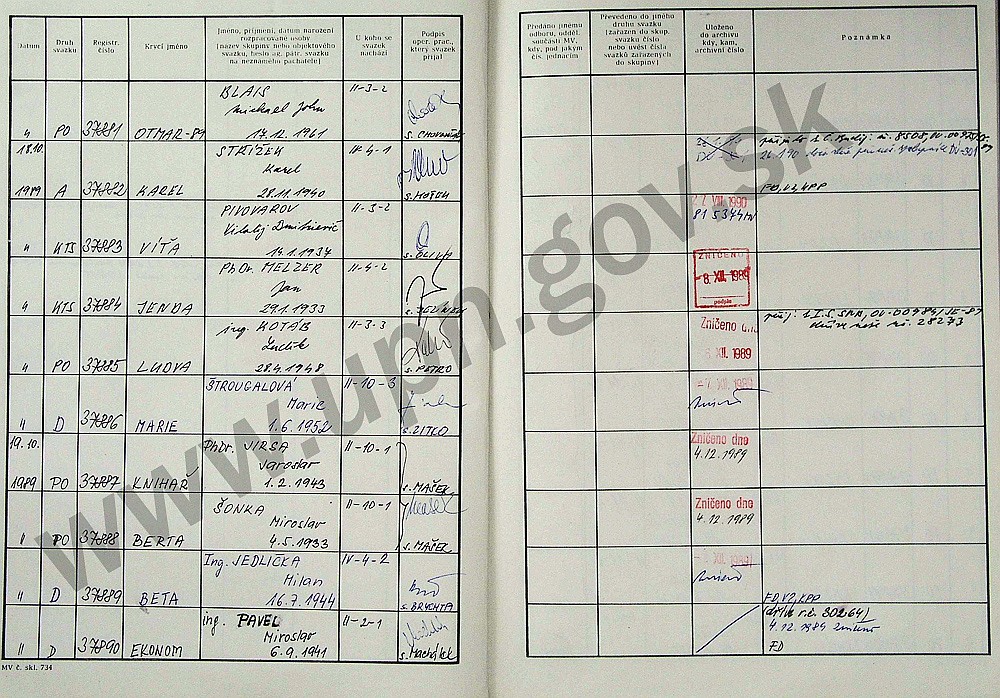 Datum
Druh svazku
Registr. číslo
Krycí jméno
Jméno, příjmení, datum narození
rozpracované osoby
[název skupiny nebo objektového
svazku, heslo ag. pátr. svazku
na neznámého pachatele]
U koho se
svazek
nachází
Podpis
oper. prac.,
který svazek
přijal
Předáno jinému
odboru, odděl.
součásti MV,
kdy, pod jakým
čís. jednacím
Převedeno do jiného
druhu svazku
[zařazen do skup.
svazku číslo
nebo uvést čísla
svazků zařazených
do skupiny]
Uloženo
do archivu
kdy, kam,
archivní číslo
Poznámka
BLAIS II-3-2
Michael John
" PO 37881 OTMAR-89 17.12.1961
18.10. STŘÍŽEK IV-4-1
Karel
1989 A 37882 KAREL 28.11.1940
FD, VZ, KPP
PIVOVAROV II-3-2 27. VII. 1990
Vitalij Dmitrievič 815344 MV
" KTS 37883 VÍŤA 14.1.1937 s. ŠLIKA
PhDr. MELZER II-4-2 ZNIČENO
Jan -8. XII. 1989
" KTS 37884 JENDA 29.1.1933 podpis
ing. KOTÁB II-3-3 Zničeno dne
Luděk XII. 1989
" PO 37885 LUDVA 28.4.1948 s. PETRO
28273
ŠTROUGALOVÁ II-10-3 -7. XII. 1989
Marie
" D 37886 MARIE 1.6.1952 s. ZITKO
19.10. PhDr. JIRSA II-10-1 Zničeno dne
Jaroslav 4.12.1989
1989 PO 37887 KNIHAŘ 1.2.1943 s. MAŠEK
ŠONKA II-10-1 Zničeno dne
Miroslav 4.12.1989
" PO 37888 BERTA 4.5.1933 s. MAŠEK
Ing. JEDLIČKA IV-4-2 XII. 1989
Milan
" D 37889 BETA 16.7.1944 s. BRYCHTA
FD, VZ, KPP
ing. PAVEL II-2-1 (dříve r.č. 30264)
Miroslav 4.12.1989 zničeno
" D 37890 EKONOM 6.9.1941 s. Machálek FD
MV č. skl. 734
www.upn.gov.sk